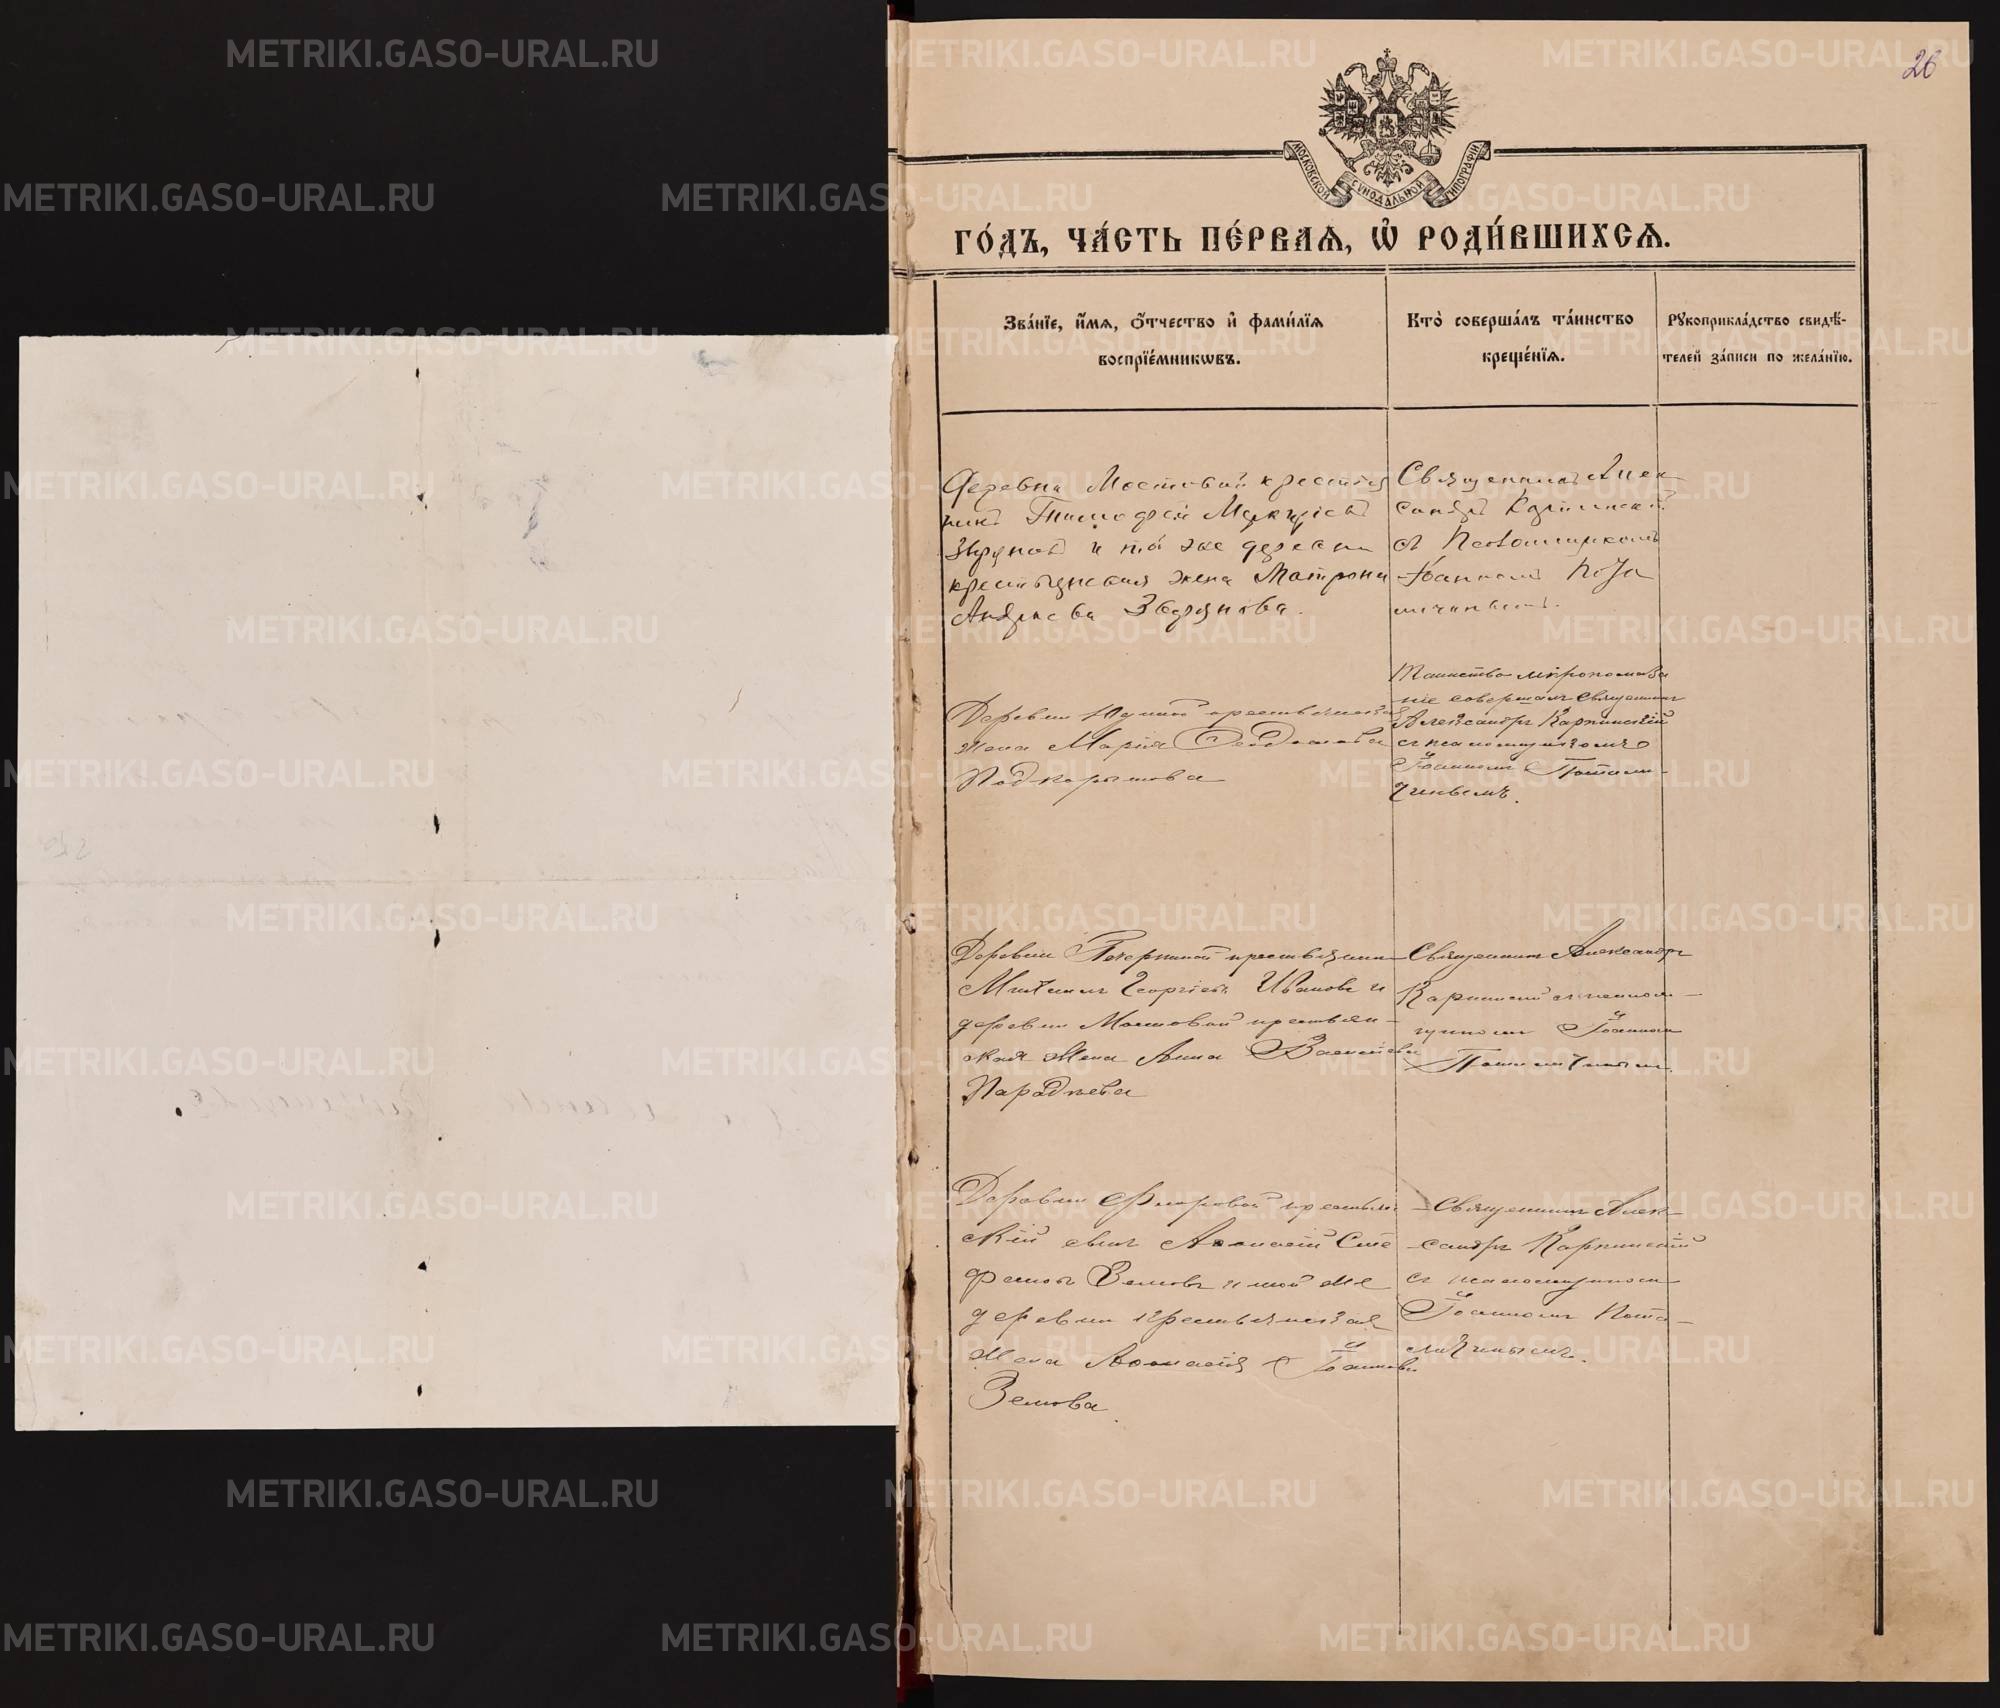 26
МОСКОВСКОЙ СѴНОДАЛЬНОЙ ТИПОГРАФІИ
ГО́ДЪ, ЧА́СТЬ ПЕ́РВАѦ, Ѽ РОДИ́ВШИХСѦ.
Зва́нїе, и҆́мѧ, ѻ҆́тчество и҆ фами́лїѧ
воспрїе́мникѡвъ.
Кто̀ соверша́лъ та́инство
креще́нїѧ.
Рꙋкоприкла́дство свидѣ́-
телей за́писи по жела́нїю.
Деревни Мостовой крестья
нинъ Тимофей
и той же деревни
крестьянская жена Матрона
Андреева
Священникъ Алек
сандръ Карпинскій
съ Псаломщикомъ
Іоанномъ Пота
Деревни крестьянская
жена Марія
Подкорытова
Таинство мѵропомаза
ніе совершалъ Священникъ
Александръ Карпинскій
съ псаломщикомъ
Іоанномъ Потами-
чинымъ.
Деревни крестьянинъ
Георгіевъ Ивановъ и
деревни Мостовой крестьян-
ская жена Анна
Парадѣева
Священникъ Александръ
Карпинскій съ псалом-
щикомъ Іоанномъ
Потамичинымъ.
Деревни крестьян
скій сынъ Аѳанасій Сте
фановъ Земовъ и той же
деревни крестьянская
жена Аѳанасія Іоаннова
Земова
Священникъ Алек-
сандръ Карпинскій
съ псаломщикомъ
Іоанномъ Пота-
мичинымъ.